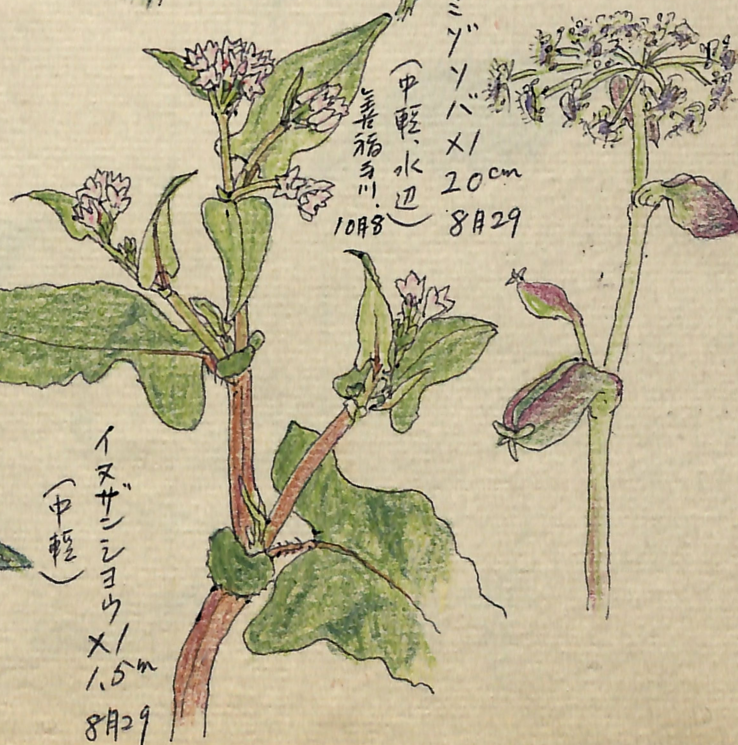 ミゾソバ ×1
20cm
8月29
(中軽、水辺)
善福寺川.
10月8
イヌザンショウ
×1
1.5m
8月29
(中軽)